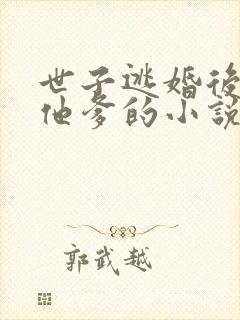 世子逃婚後
他爹的小說
郭武越